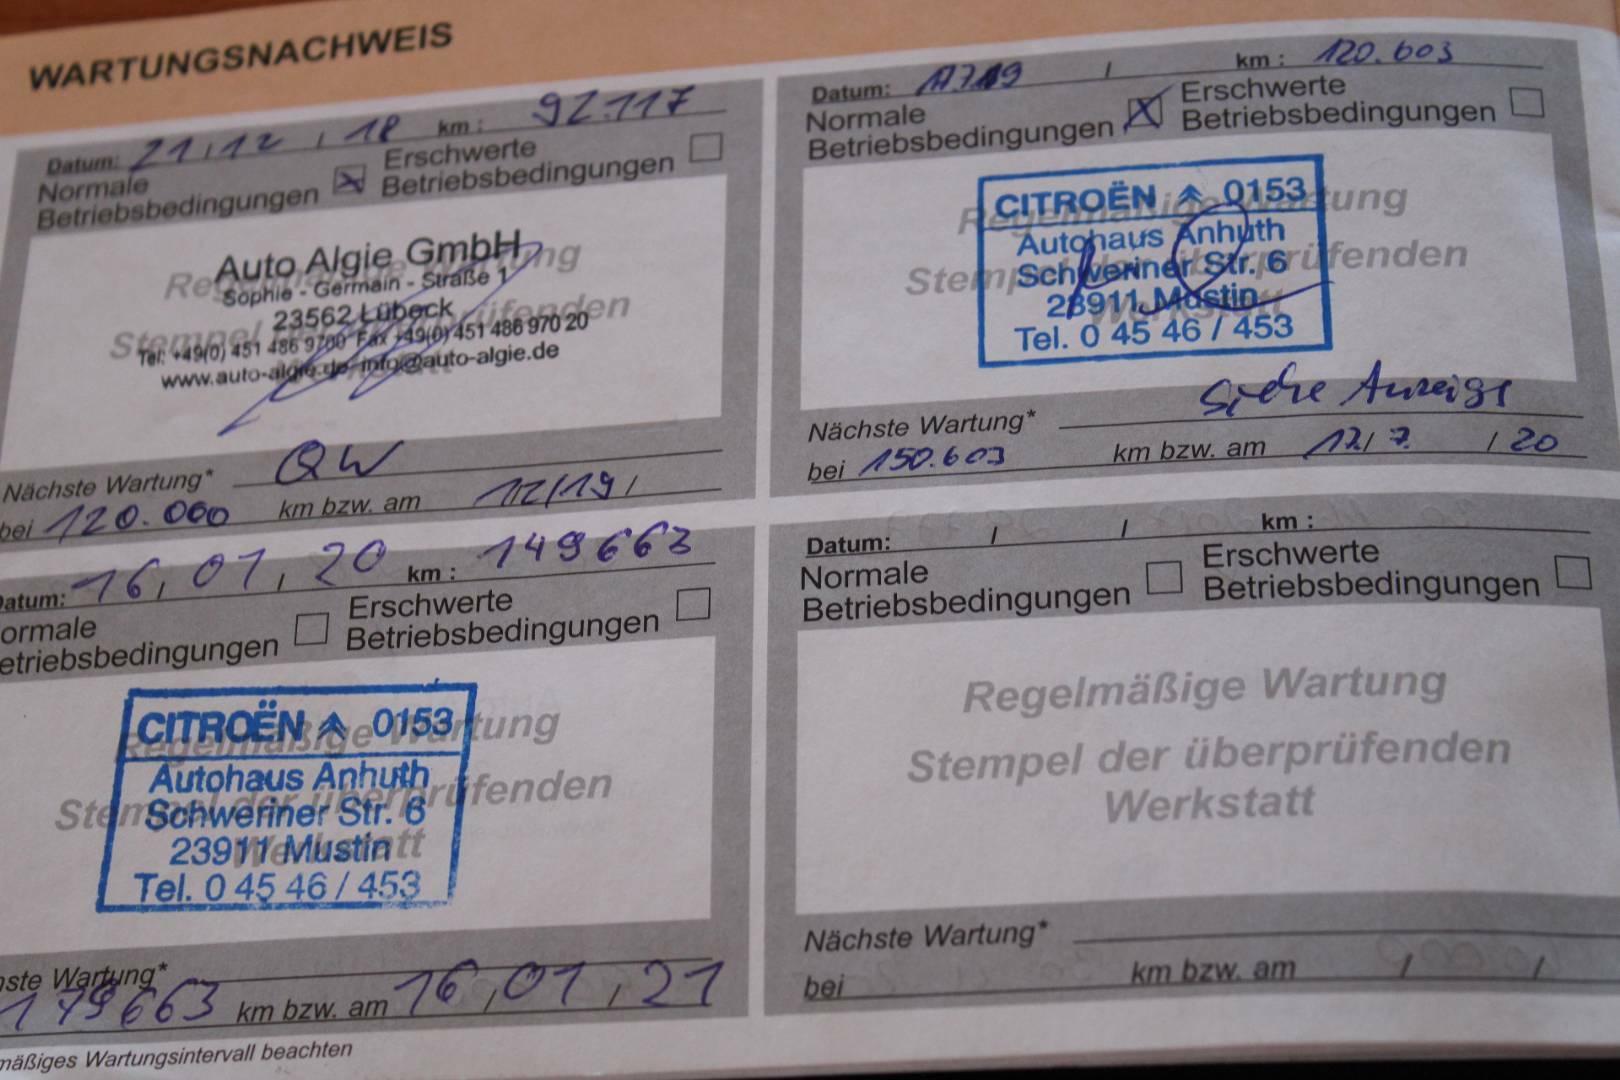 WARTUNGSNACHWEIS
Datum: 21 / 12 / 18 km : 92.117
Normale Betriebsbedingungen
Erschwerte Betriebsbedingungen
Regelmäßige Wartung
Stempel der überprüfenden
Werkstatt
Auto Algie GmbH
Sophie - Germain - Straße 1
23562 Lübeck
Tel: +49(0) 451 486 9700 Fax +49(0) 451 486 970 20
www.auto-algie.de info@auto-algie.de
Nächste Wartung* QW
bei 120.000 km bzw. am 12/19 /
Datum: / km : 120.603
Normale Betriebsbedingungen
Erschwerte Betriebsbedingungen
Regelmäßige Wartung
Stempel der überprüfenden
Werkstatt
CITROËN 0153
Autohaus Anhuth
Schweriner Str. 6
23911 Mustin
Tel. 0 45 46 / 453
Nächste Wartung* Siehe Anzeige
bei 150.603 km bzw. am / 7. / 20
atum: 16, 01, 20 km : 149663
ormale
etriebsbedingungen
Erschwerte
Betriebsbedingungen
Regelmäßige Wartung
Stempel der überprüfenden
Werkstatt
CITROËN 0153
Autohaus Anhuth
Schweriner Str. 6
23911 Mustin
Tel. 0 45 46 / 453
hste Wartung*
179663 km bzw. am 16, 01, 21
Datum: / / km :
Normale
Betriebsbedingungen
Erschwerte
Betriebsbedingungen
Regelmäßige Wartung
Stempel der überprüfenden
Werkstatt
Nächste Wartung*
bei km bzw. am / /
mäßiges Wartungsintervall beachten